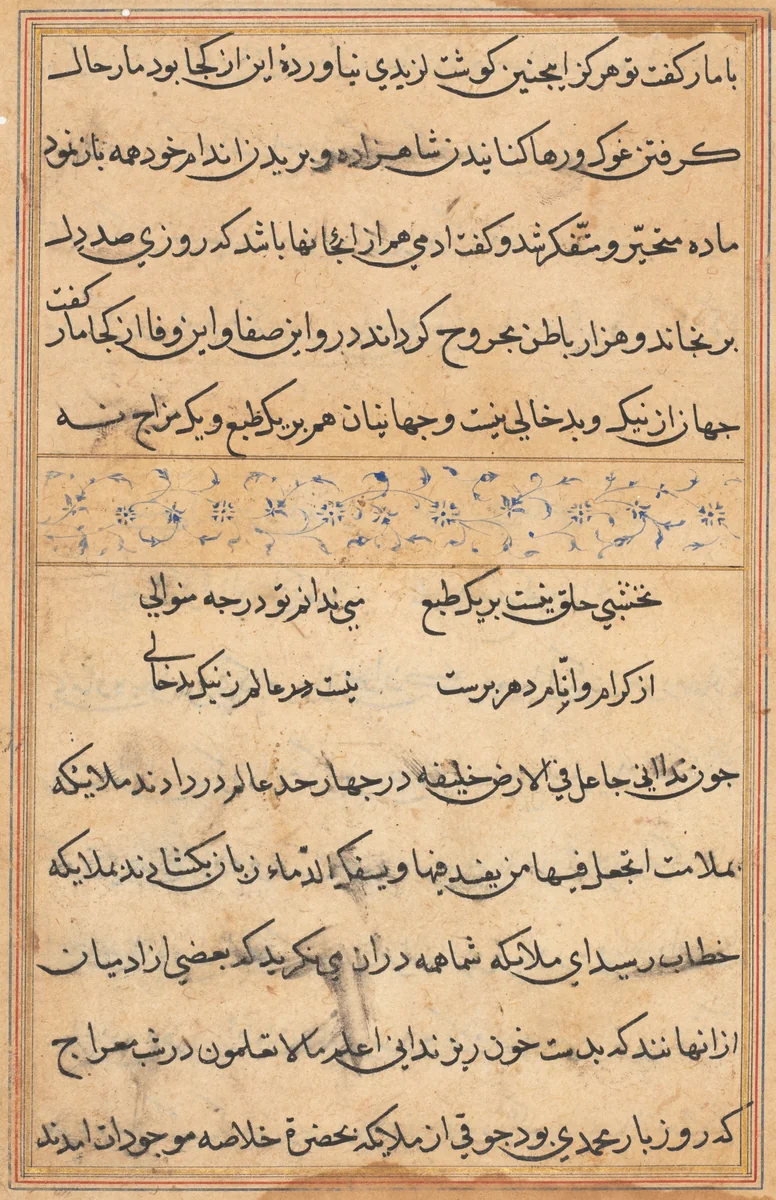 با مار كفت تو هركز ايمجنين كوشت لزيدي نياوردۀ اين از كجا بود مار حال
كرفتن غوك و رها كنانيدن شاهزاده و بريدن اندام خود همه باز نمود
ماده متحيّر و متّفكر شد و كفت ادمي هم از انجانها باشد كه روزي صد دل
برنجاند و هزار باطن مجروح كرداند درو اين صفا و اين وفا از كجا مار كفت
جهان از نيك و بد خالي نيست و جهانيان هم بريك طبع و يك مزاج نه
نخشبي خلق نيست بريك طبع
مي ندانم تو در جه منوالي
از كرام و لئام دهر پرست
نيست در عالم ز نيك بد خالي
جون ندا اني جاعل في الارض خليفه در جهار حد عالم در دادند ملايكه
بملامت اتجعل فيها من يفسد فيها و يسفك الدّماء زبان بكشادند بملايكه
خطاب رسيد اي ملايكه شما همه دران مي نكريد كه بعضي از ادميان
از انها نند كه بدست خون ريزند اني اعلم ما لا تعلمون در شب معراج
كه روز بار محمدي بود جوقي از ملايكه بحضرة خلاصه موجودات امدند